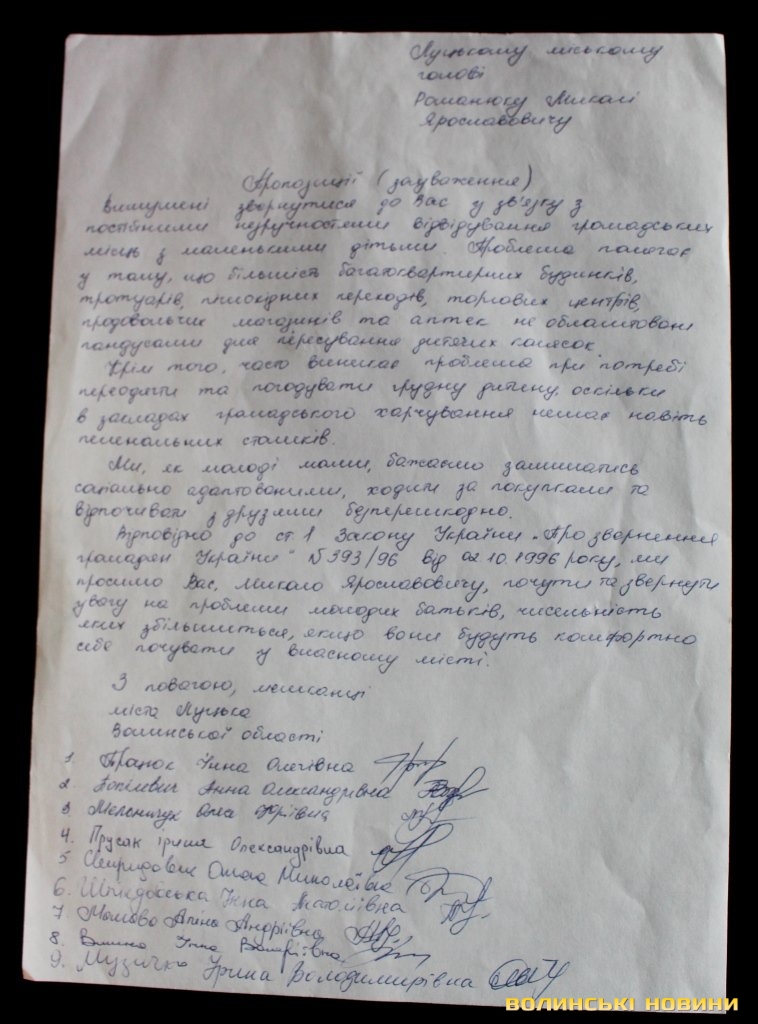 Луцькому міському
голові
Романюку Миколі
Ярославовичу
Пропозиції (зауваження)
Вимушені звернутися до Вас у зв'язку з
постійними незручностями відвідування громадських
місць з маленькими дітьми. Проблема полягає
у тому, що більшість багатоквартирних будинків,
тротуарів, пішохідних переходів, торгових центрів,
продовольчих магазинів та аптек не облаштовані
пандусами для пересування дитячих колясок.
Крім того, часто виникає проблема при потребі
переодягти та погодувати грудну дитину, оскільки
в закладах громадського харчування немає навіть
пеленальних столиків.
Ми, як молоді мами, бажаємо залишатись
соціально адаптованими, ходити за покупками та
відпочивати з друзями безперешкодно.
Відповідно до ст.1 Закону України „Про звернення
громадян України" №393/96 від 02.10.1996 року, ми
просимо Вас, Микола Ярославовичу, почути та звернути
увагу на проблеми молодих батьків, чисельність
яких збільшиться, якщо вони будуть комфортно
себе почувати у власному місті.
З повагою, мешканці
міста Луцька
Волинської області
1. Інна Олегівна
2. Анна Олександрівна
3. Мельничук Юріївна
4. Прусак Ірина Олександрівна
5. Миколаївна
6. Інна
7. Аліна Андріївна
8. Інна Валеріївна
9. Музичко Ірина Володимирівна
ВОЛИНСЬКІ НОВИНИ